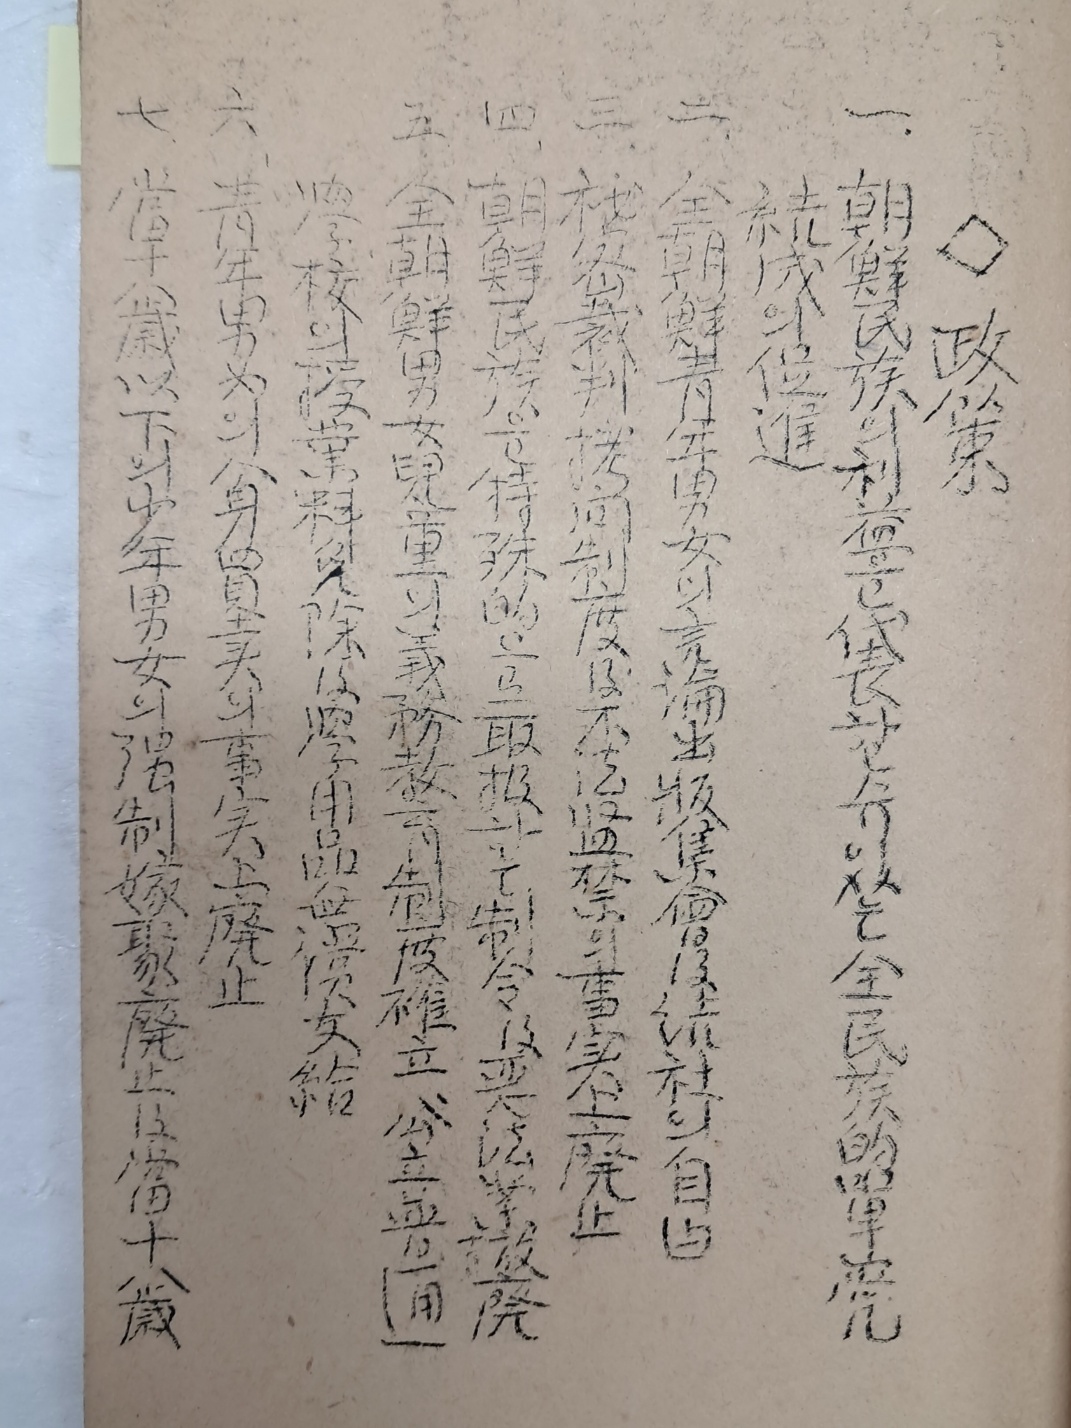 ◇ 政策
一、朝鮮民族의利益을代表할수잇는全民族的單一黨
結成의促進
二、全朝鮮青年男女의言論出版集會及結社의自由
三、秘密裁判拷問制度及不法監禁의事実上廃止
四、朝鮮民族을特殊的으로取扱하는制令及悪法等撤廃
五、全朝鮮男女児童의義務教育制度確立 公立普通
學校의授業料免除及學用品無償支給
六、青年男女의人身買賣의事実上廃止
七、當十八歳以下의少年男女의强制嫁娶廃止及當十八歳